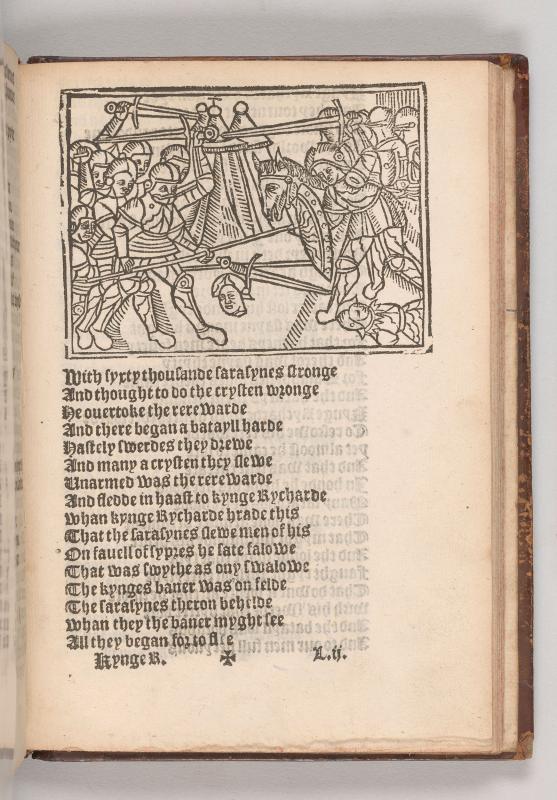 With syxty thousande sarasynes stronge
And thought to do the crysten wronge
He ouertoke the rere warde
And there began a batayll harde
Hastely swerdes they drewe
And many a crysten they slewe
Unarmed was the rere warde
And fledde in haast to kynge Rycharde
whan kynge Rycharde hrade this
That the sarasynes slewe men of his
On fauell of sypres he sate falowe
That was swythe as ony swalowe
The kynges baner was on felde
The sarasynes theron behelde
whan they the baner myght see
All they began for to flee
Kynge R. ✠ L.ij.